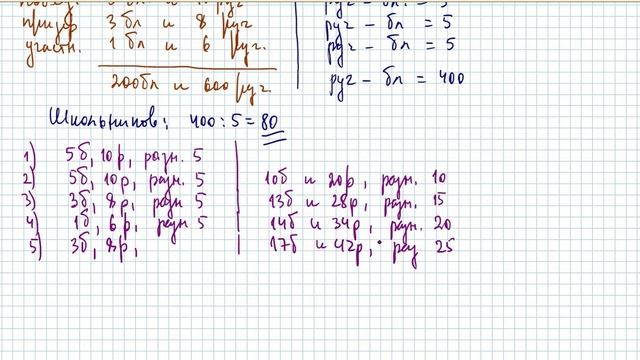 призёр 3 бл и 8 руч
участн. 1 бл и 6 руч.
200 бл и 600 руч
руч - бл = 5
руч - бл = 5
руч - бл = 400
Школьников: 400 : 5 = 80
1) 5б, 10р, разн. 5
2) 5б, 10р, разн. 5
3) 3б, 8р, разн 5
4) 1б, 6р, разн 5
5) 3б, 8р,
10б и 20р, разн. 10
13б и 28р, разн. 15
14б и 34р, разн. 20
17б и 42р, раз 25